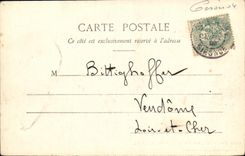 CARTE POSTALE
Ce côté est exclusivement réservé à l'adresse
M Bittighoffer
Vendôme
Loir-et-Cher